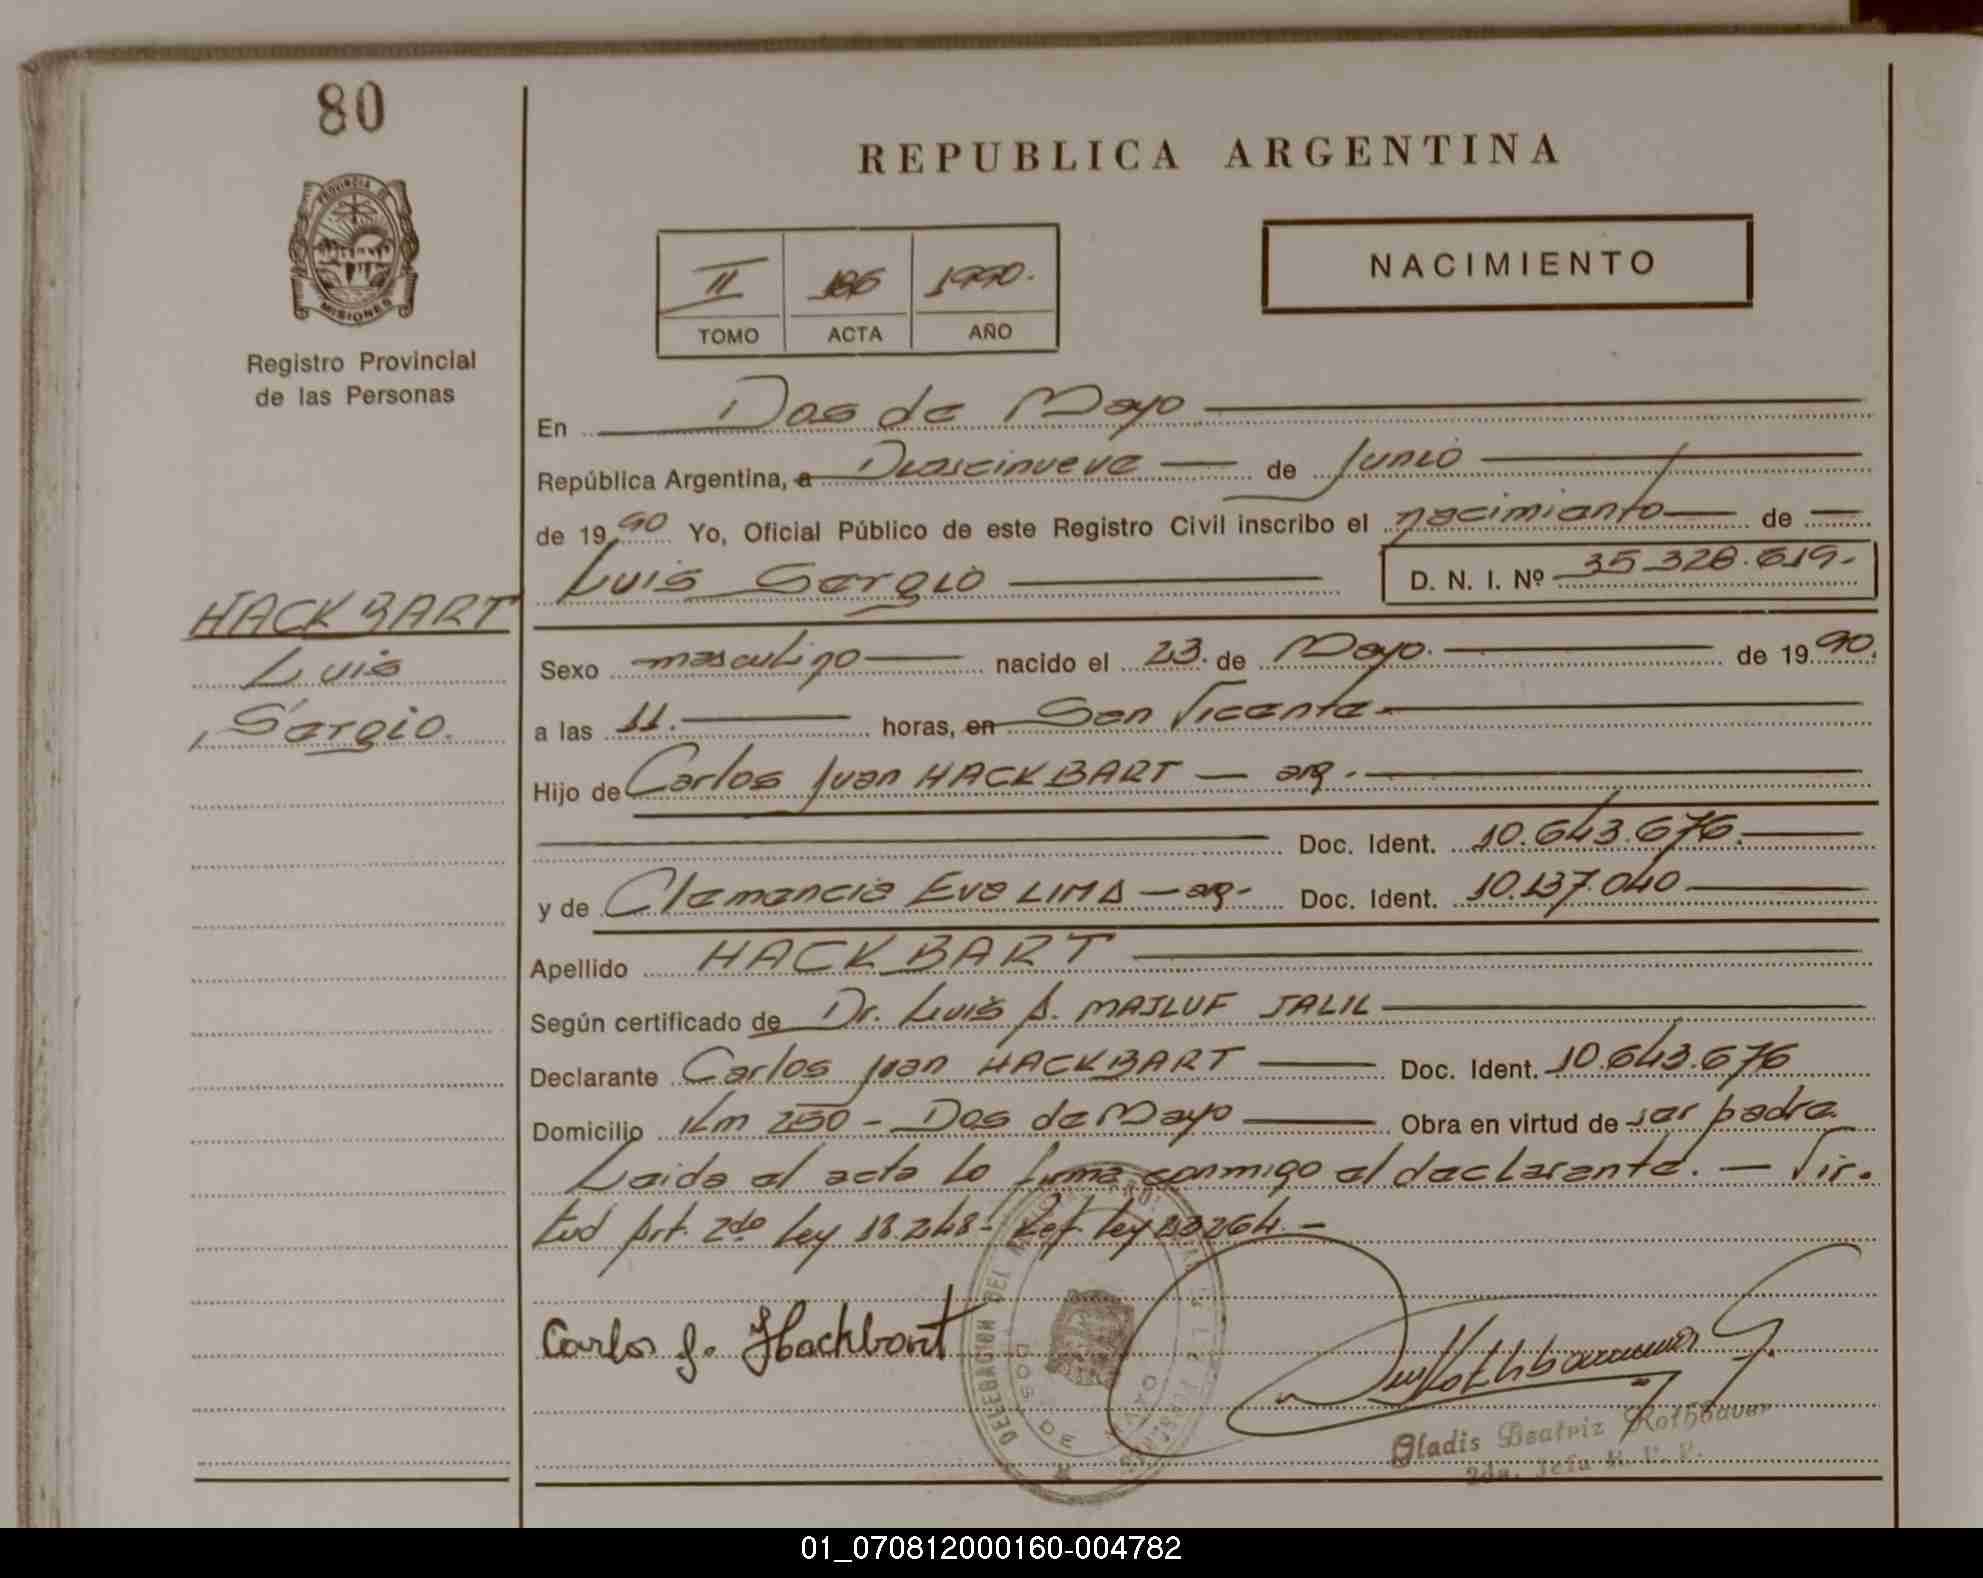 80
PROVINCIA DE
MISIONES
Registro Provincial
de las Personas
HACKBART
Luis
Sergio.
REPUBLICA ARGENTINA
II 186 1990.
TOMO ACTA AÑO
NACIMIENTO
En Dos de Mayo
República Argentina, a Diescinueve de Junio
de 1990 Yo, Oficial Público de este Registro Civil inscribo el nacimiento de
Luis Sergio D. N. I. Nº 35.328.619.-
Sexo masculino nacido el 23. de Mayo. de 1990.
a las 11. horas, en San Vicente
Hijo de Carlos Juan HACKBART — arg.
Doc. Ident. 10.643.676.
y de Clemencia Eva LIMA — arg- Doc. Ident. 10.137.040
Apellido HACKBART
Según certificado de Dr. Luis A. MAJLUF JALIL
Declarante Carlos Juan HACKBART Doc. Ident. 10.643.676
Domicilio Km 250 - Dos de Mayo Obra en virtud de ser padre
Leida el acta lo firma conmigo el declarante. — Vir.
tud Art. 2do Ley 18.248- Ref Ley 23264.-
Carlos J. Hackbart
DOS DE MAYO
Gladis Beatriz Rothbauer
2da. Jefa R. P. P.
01_070812000160-004782